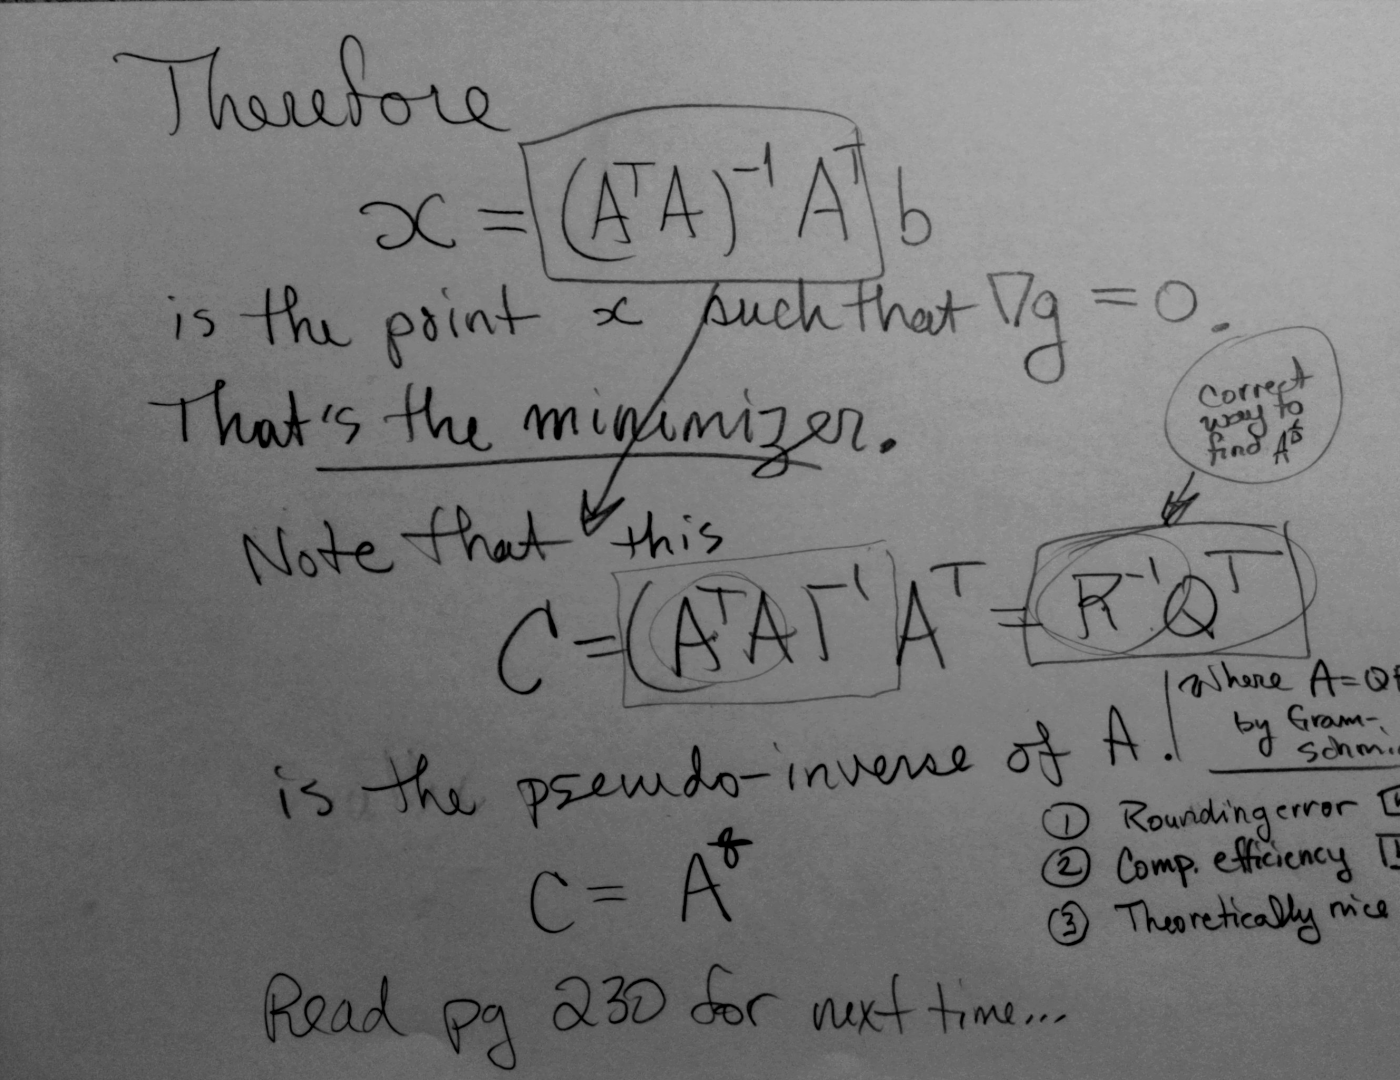 Therefore
x = (AᵀA)⁻¹ Aᵀ b
is the point x such that ∇g = 0.
That's the minimizer.
Correct
way to
find A^♯
Note that this
C = (AᵀA)⁻¹ Aᵀ = R⁻¹Qᵀ
Where A=Q
by Gram-
Schmi
is the pseudo-inverse of A.
① Rounding error
② Comp. efficiency
③ Theoretically nice
C = A^♯
Read pg 230 for next time...